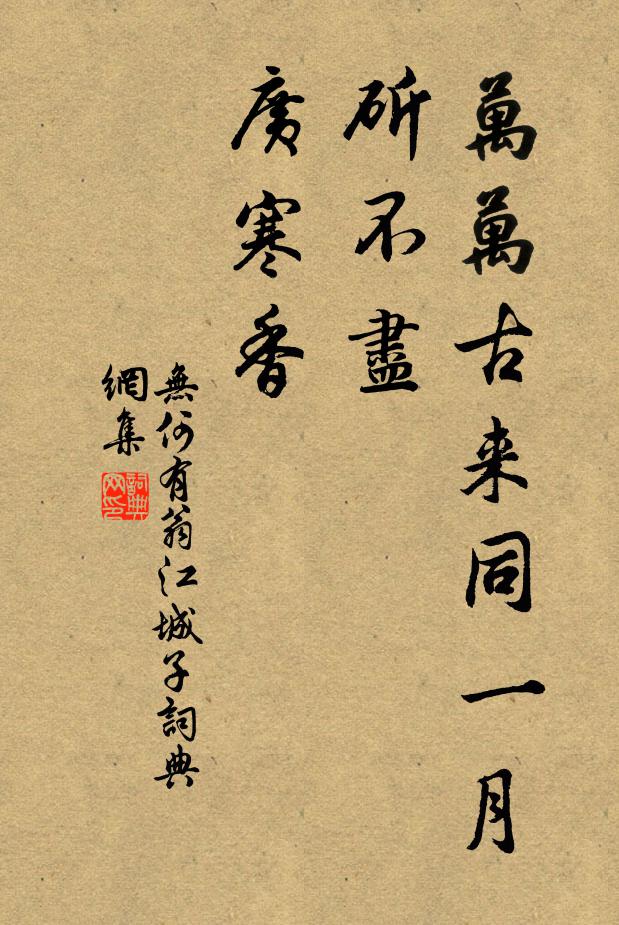 萬萬古来同一月
斫不盡
廣寒香
無何有翁江城子詞典
網集
詞典
网印